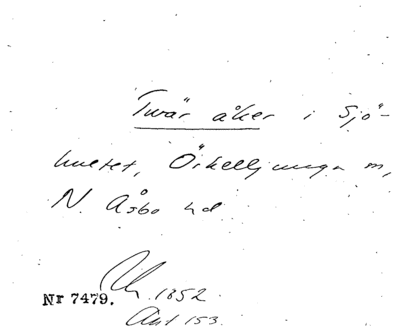 Twär åker i Sjö-
hultet, Örkelljunga sn,
N. Åsbo hd
Nr 7479.
1852
Akt 153.